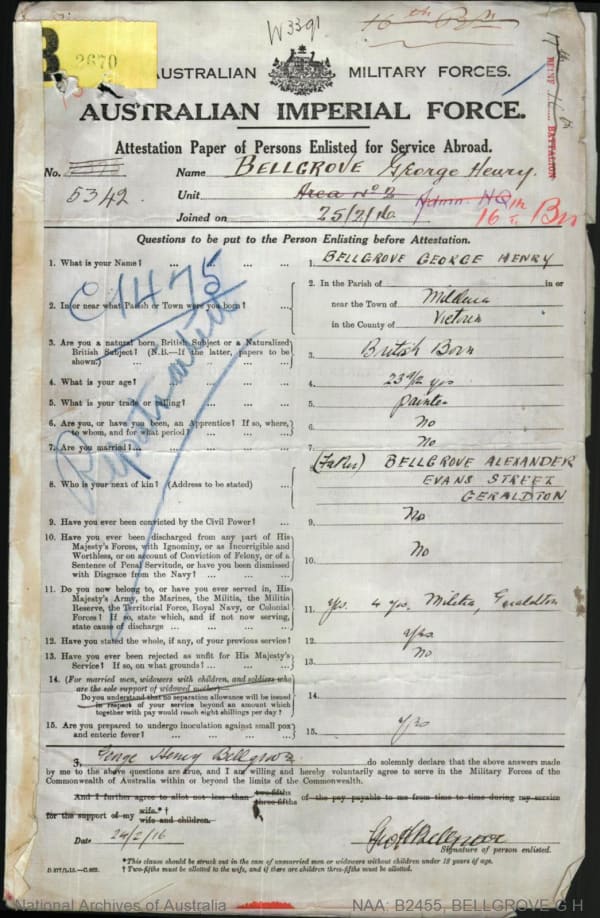 W3391
16th Bn
B 2670
AUSTRALIAN MILITARY FORCES.
AUSTRALIAN IMPERIAL FORCE.
BATTALION
Attestation Paper of Persons Enlisted for Service Abroad.
No. 5342 Name BELLGROVE George Henry.
Unit Area No 2 Admin HQ 16th Bn
Joined on 25/2/16
Questions to be put to the Person Enlisting before Attestation.
C1475
Repatriated
1. What is your Name? ... ... ... 1. BELLGROVE GEORGE HENRY
2. In or near what Parish or Town were you born? ... 2. In the Parish of in or
near the Town of Mildura
in the County of Victoria
3. Are you a natural born British Subject or a Naturalized
British Subject? (N.B.—If the latter, papers to be
shown.) 3. British Born
4. What is your age? ... ... ... 4. 23 9/12 yrs
5. What is your trade or calling? ... ... 5. Painter
6. Are you, or have you been, an Apprentice? If so, where,
to whom, and for what period? ... ... 6. No
7. Are you married? ... ... ... 7. No
8. Who is your next of kin? (Address to be stated) ... 8. (Father) BELLGROVE ALEXANDER
EVANS STREET
GERALDTON
9. Have you ever been convicted by the Civil Power? ... 9. No
10. Have you ever been discharged from any part of His
Majesty's Forces, with Ignominy, or as Incorrigible and
Worthless, or on account of Conviction of Felony, or of a
Sentence of Penal Servitude, or have you been dismissed
with Disgrace from the Navy? ... 10. No
11. Do you now belong to, or have you ever served in, His
Majesty's Army, the Marines, the Militia, the Militia
Reserve, the Territorial Force, Royal Navy, or Colonial
Forces? If so, state which, and if not now serving,
state cause of discharge ... ... 11. Yes. 4 yrs. Militia, Geraldton
12. Have you stated the whole, if any, of your previous service? 12. Yes
13. Have you ever been rejected as unfit for His Majesty's
Service? If so, on what grounds? ... 13. No
14. (For married men, widowers with children, and soldiers who
are the sole support of widowed mother)—
Do you understand that no separation allowance will be issued
in respect of your service beyond an amount which
together with pay would reach eight shillings per day? 14.
15. Are you prepared to undergo inoculation against small pox
and enteric fever? ... ... 15. Yes
I, George Henry Bellgrove do solemnly declare that the above answers made
by me to the above questions are true, and I am willing and hereby voluntarily agree to serve in the Military Forces of the
Commonwealth of Australia within or beyond the limits of the Commonwealth.
And I further agree to allot not less than two-fifths three-fifths of the pay payable to me from time to time during my service
for the support of my wife.*† wife and children.
Date 24/2/16 Geo H Bellgrove
Signature of person enlisted.
*This clause should be struck out in the case of unmarried men or widowers without children under 18 years of age.
† Two-fifths must be allotted to the wife, and if there are children three-fifths must be allotted.
National Archives of Australia NAA: B2455, BELLGROVE G H